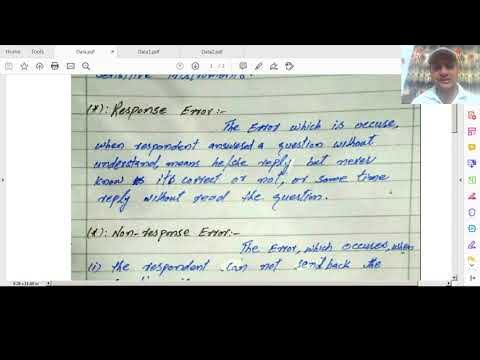 Home Tools Data.pdf Data1.pdf Data2.pdf
1 / 3
Sensitive Instruments.
(*): Response Error:-
The Error which is occuse,
when respondent answered a question without
understand, means he/she reply but never
know is its correct or not, or some time
reply without read the question.
(*): Non-response Error:-
The Error, which occuses, when
(i) the respondent can not send back the
8.26 x 11.69 in